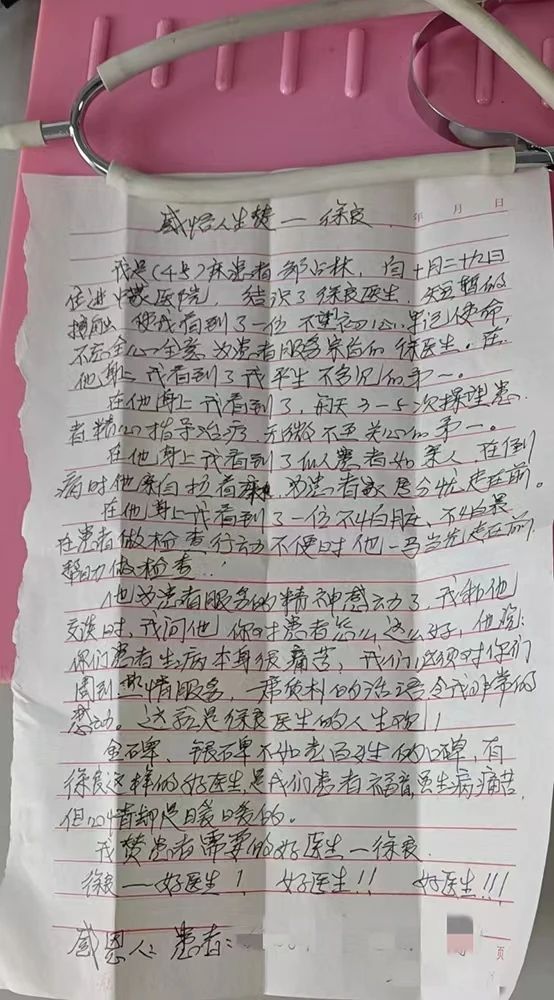 感悟人生赞一徐良
年 月 日
我是(45)床患者邹占林,自十月二十九日
住进中蒙医院,结识了徐良医生,短暂的
使我看到了一位不忘初心,牢记使命,
全心全意为患者服务宗旨的徐医生。在
他身上我看到了我平生不多见的第一。
在他身上我看到了,每天3-5次搽理患
者精心指导治疗,无微不至关心的第一。
在他身上我看到了似人患者如亲人,在倒
病时他亲自扶着,为患者家属分忧走在前。
在他身上我看到了一份不怕脏、不怕累
在患者做检查行动不便时他一马当先走在前
帮助做检查!
他为患者服务的精神感动了,我和他
交谈时,我问他你对患者怎么这么好,他说:
你们患者生病本身很痛苦,我们必须对你们
周到热情服务,一席质朴的话语令我非常的
感动。这就是徐良医生的人生观!
金碑、银碑不如老百姓的口碑,有
徐良这样的好医生是我们患者福音,虽生病痛苦,
但心情却是暖暖的。
我赞患者需要的好医生一徐良
徐良一好医生! 好医生!! 好医生!!!
感恩人:患者:
页